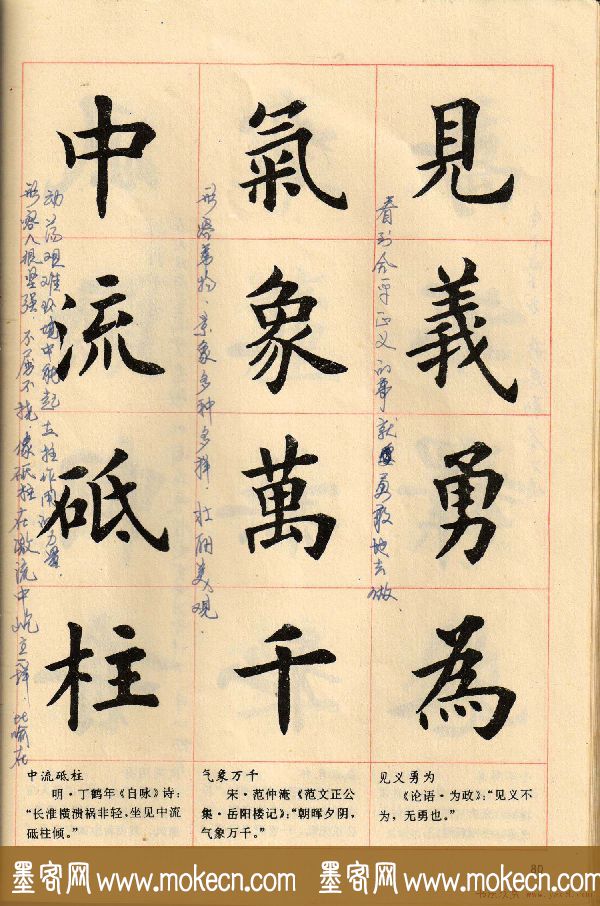 見義勇為
氣象萬千
中流砥柱
看到公平正义的事就要勇敢地去做.
形容景物、景象多种多样 壮丽美观.
形容人很坚强不屈不挠,像砥柱在激流中屹立一样 比喻在
动荡艰难环境中能起支柱作用的力量.
中流砥柱
明·丁鹤年《自咏》诗:
“长淮横溃祸非轻,坐见中流
砥柱倾。”
气象万千
宋·范仲淹《范文正公
集·岳阳楼记》:“朝晖夕阴,
气象万千。”
见义勇为
《论语·为政》:“见义不
为,无勇也。”
80
墨客网 www.mokecn.com 墨客网 www.mokecn.com